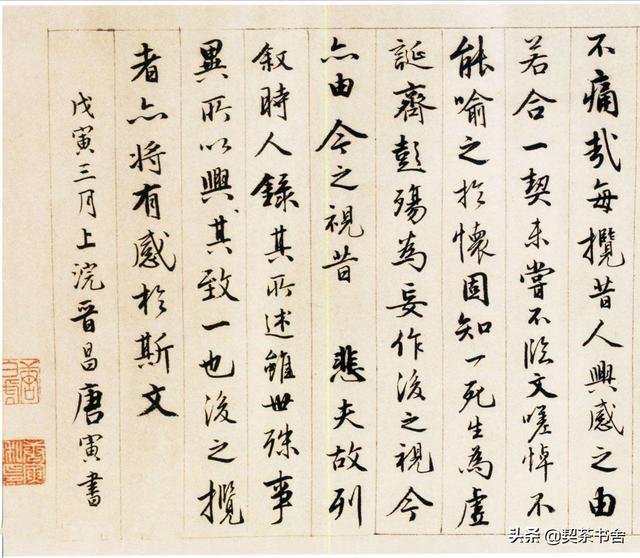 不痛哉每攬昔人興感之由
若合一契未嘗不臨文嗟悼不
能喻之於懷固知一死生為虛
誕齊彭殤為妄作後之視今
亦由今之視昔 悲夫故列
敘時人錄其所述雖世殊事
異所以興其致一也後之攬
者亦將有感於斯文
戊寅三月上浣晉昌唐寅書
头条 @契茶书舍